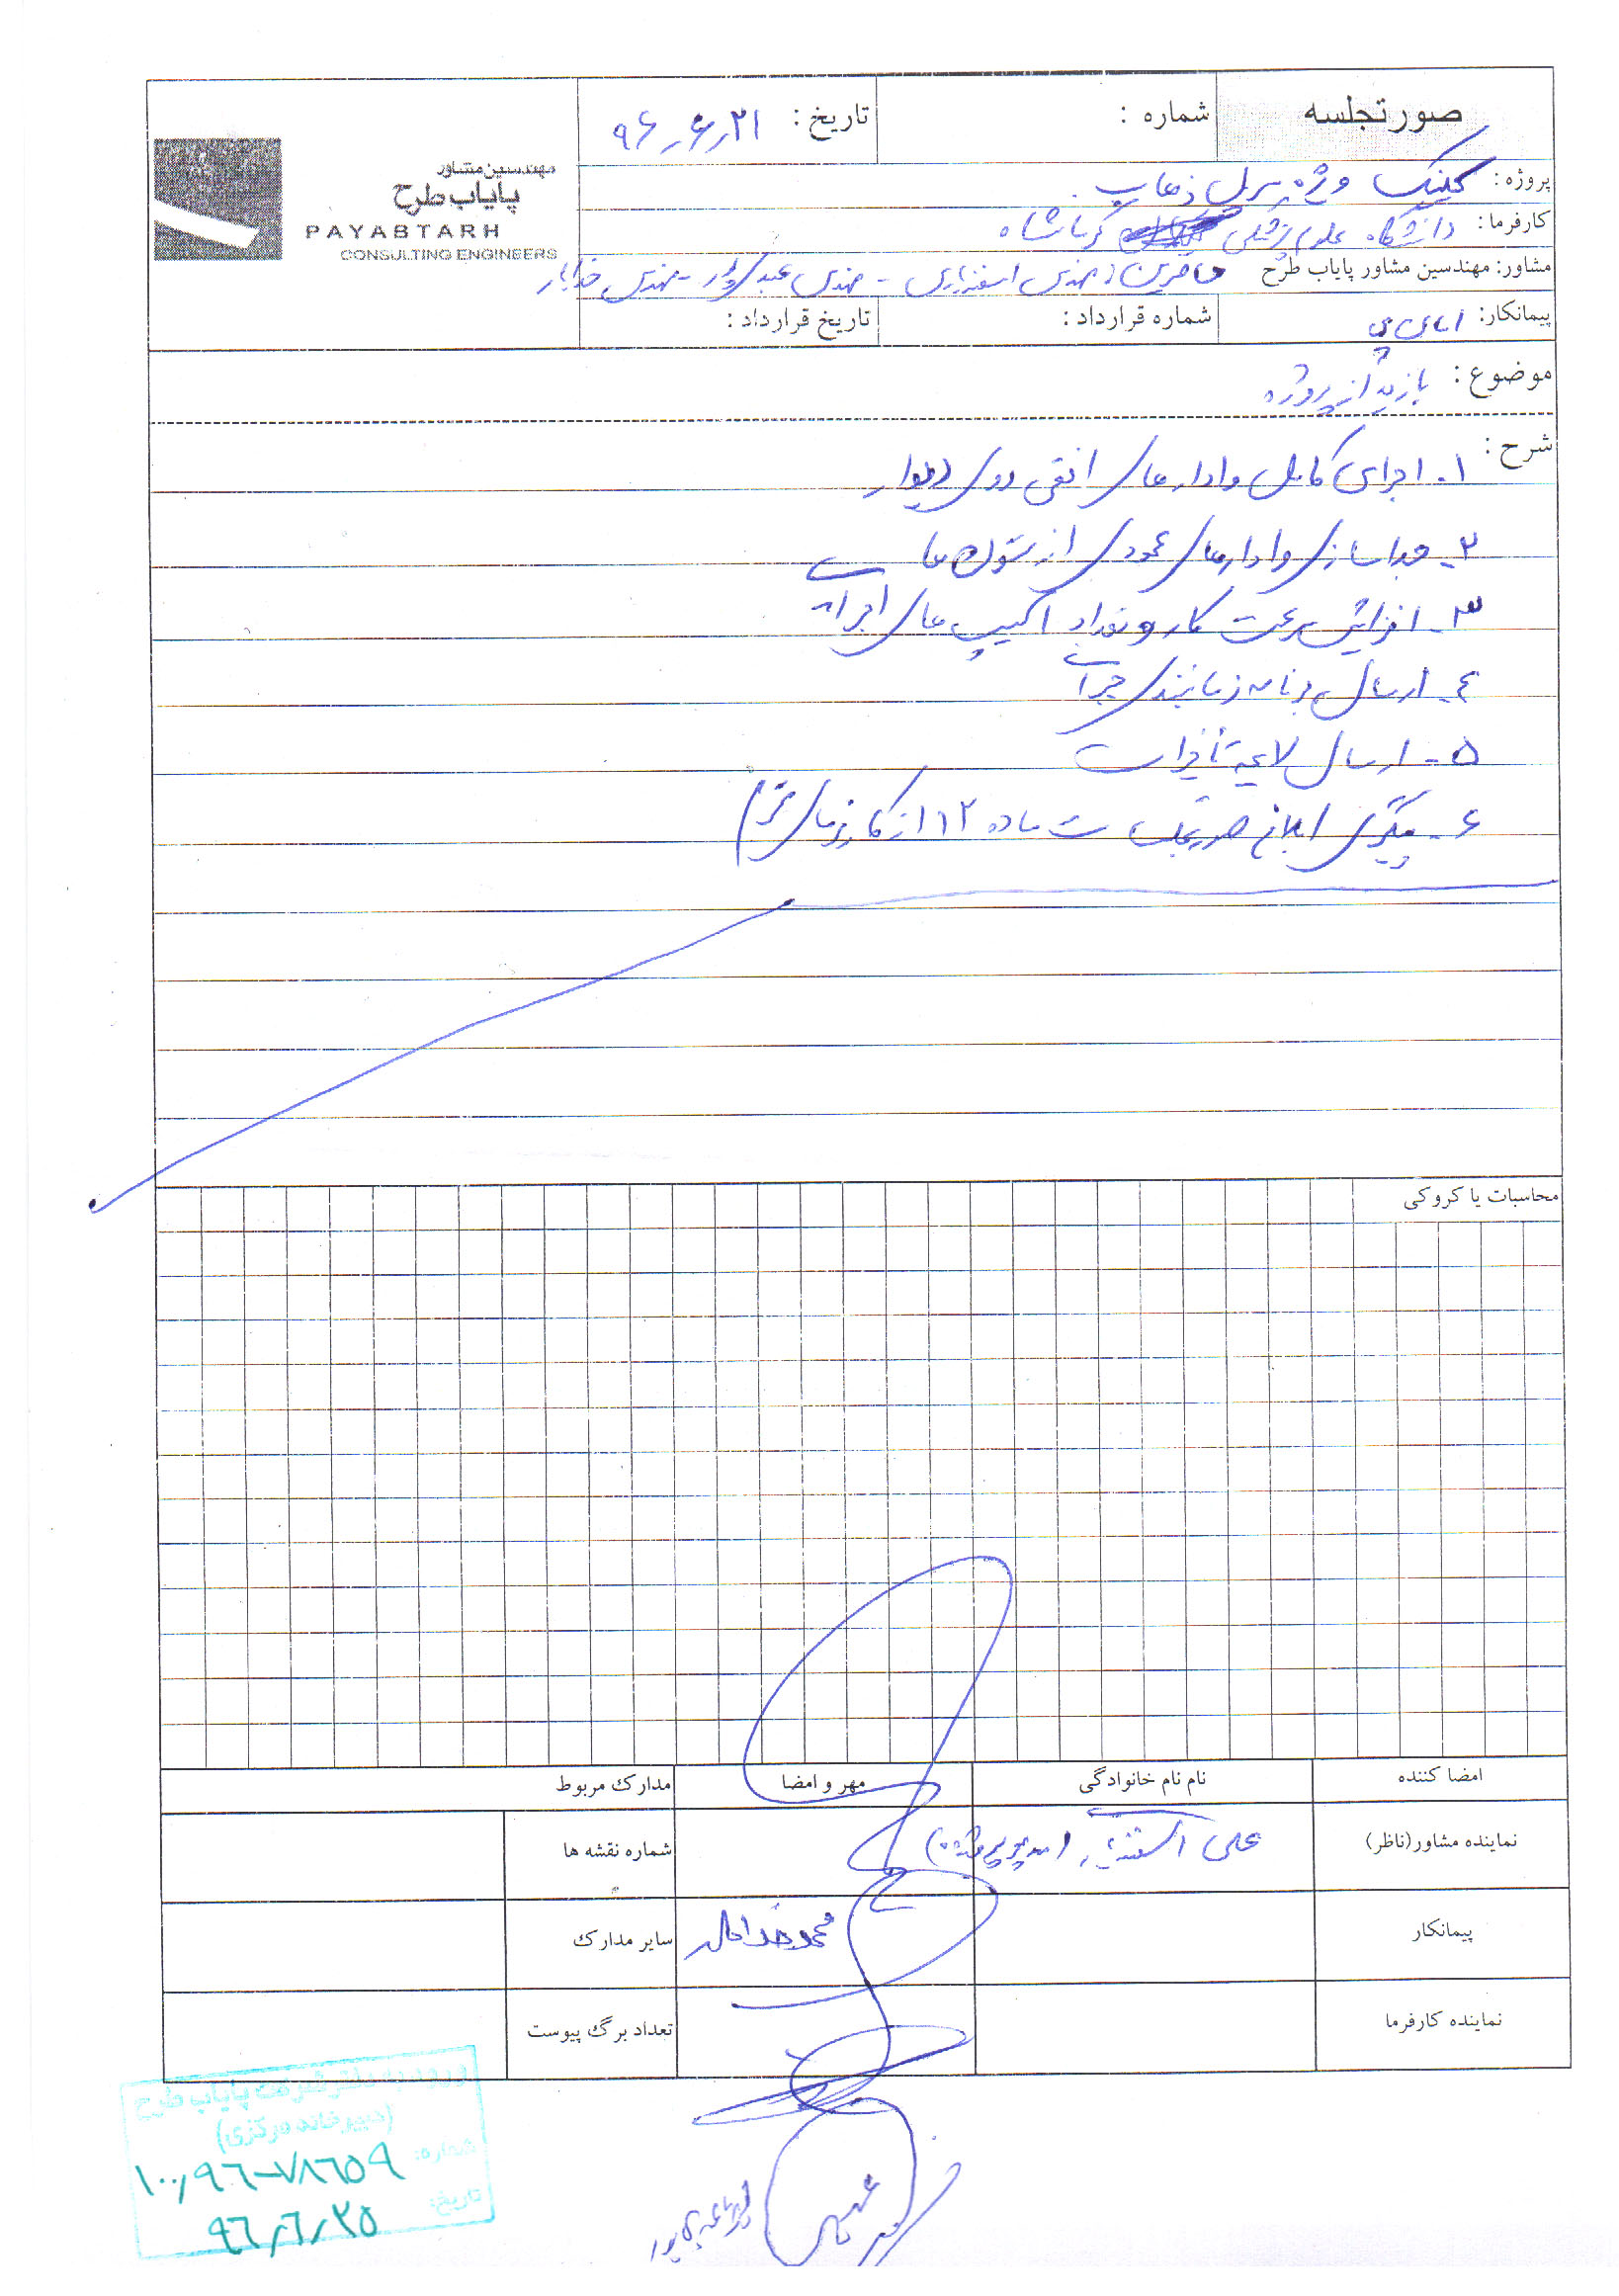 صورتجلسه
شماره :
تاریخ : ۹۶٫۶٫۲۱
مهندسین مشاور
پایاب طرح
PAYABTARH
CONSULTING ENGINEERS
پروژه : کلینیک ویژه سرپل ذهاب
کارفرما : دانشگاه علوم پزشکی کرمانشاه
مشاور: مهندسین مشاور پایاب طرح حاضرین : مهندس اسفندیاری - مهندس عبدی پور - مهندس خدایار
پیمانکار:
شماره قرارداد :
تاریخ قرارداد :
موضوع : بازدید از پروژه
شرح :
۱- اجرای کامل وادارهای افقی روی دیوار
۲- جداسازی وادارهای عمودی از ستون ها
۳- افزایش سرعت کار و تعداد اکیپ های اجرایی
۴- ارسال برنامه زمانبندی جبرانی
۵- ارسال لایحه تاخیرات
۶- پیگیری ابلاغ صورتجلسات ماده ۱۲ از کارفرمای محترم
محاسبات یا کروکی
امضا کننده
نام نام خانوادگی
مهر و امضا
مدارک مربوط
نماینده مشاور(ناظر)
علی (مدیر پروژه)
شماره نقشه ها
پیمانکار
محمد
سایر مدارک
نماینده کارفرما
تعداد برگ پیوست
ورود به دفتر شرکت پایاب طرح
(دبیرخانه مرکزی)
شماره: ۱۰۰٫۹۶-۷۸۶۵۹
تاریخ: ۹۶٫۶٫۲۵